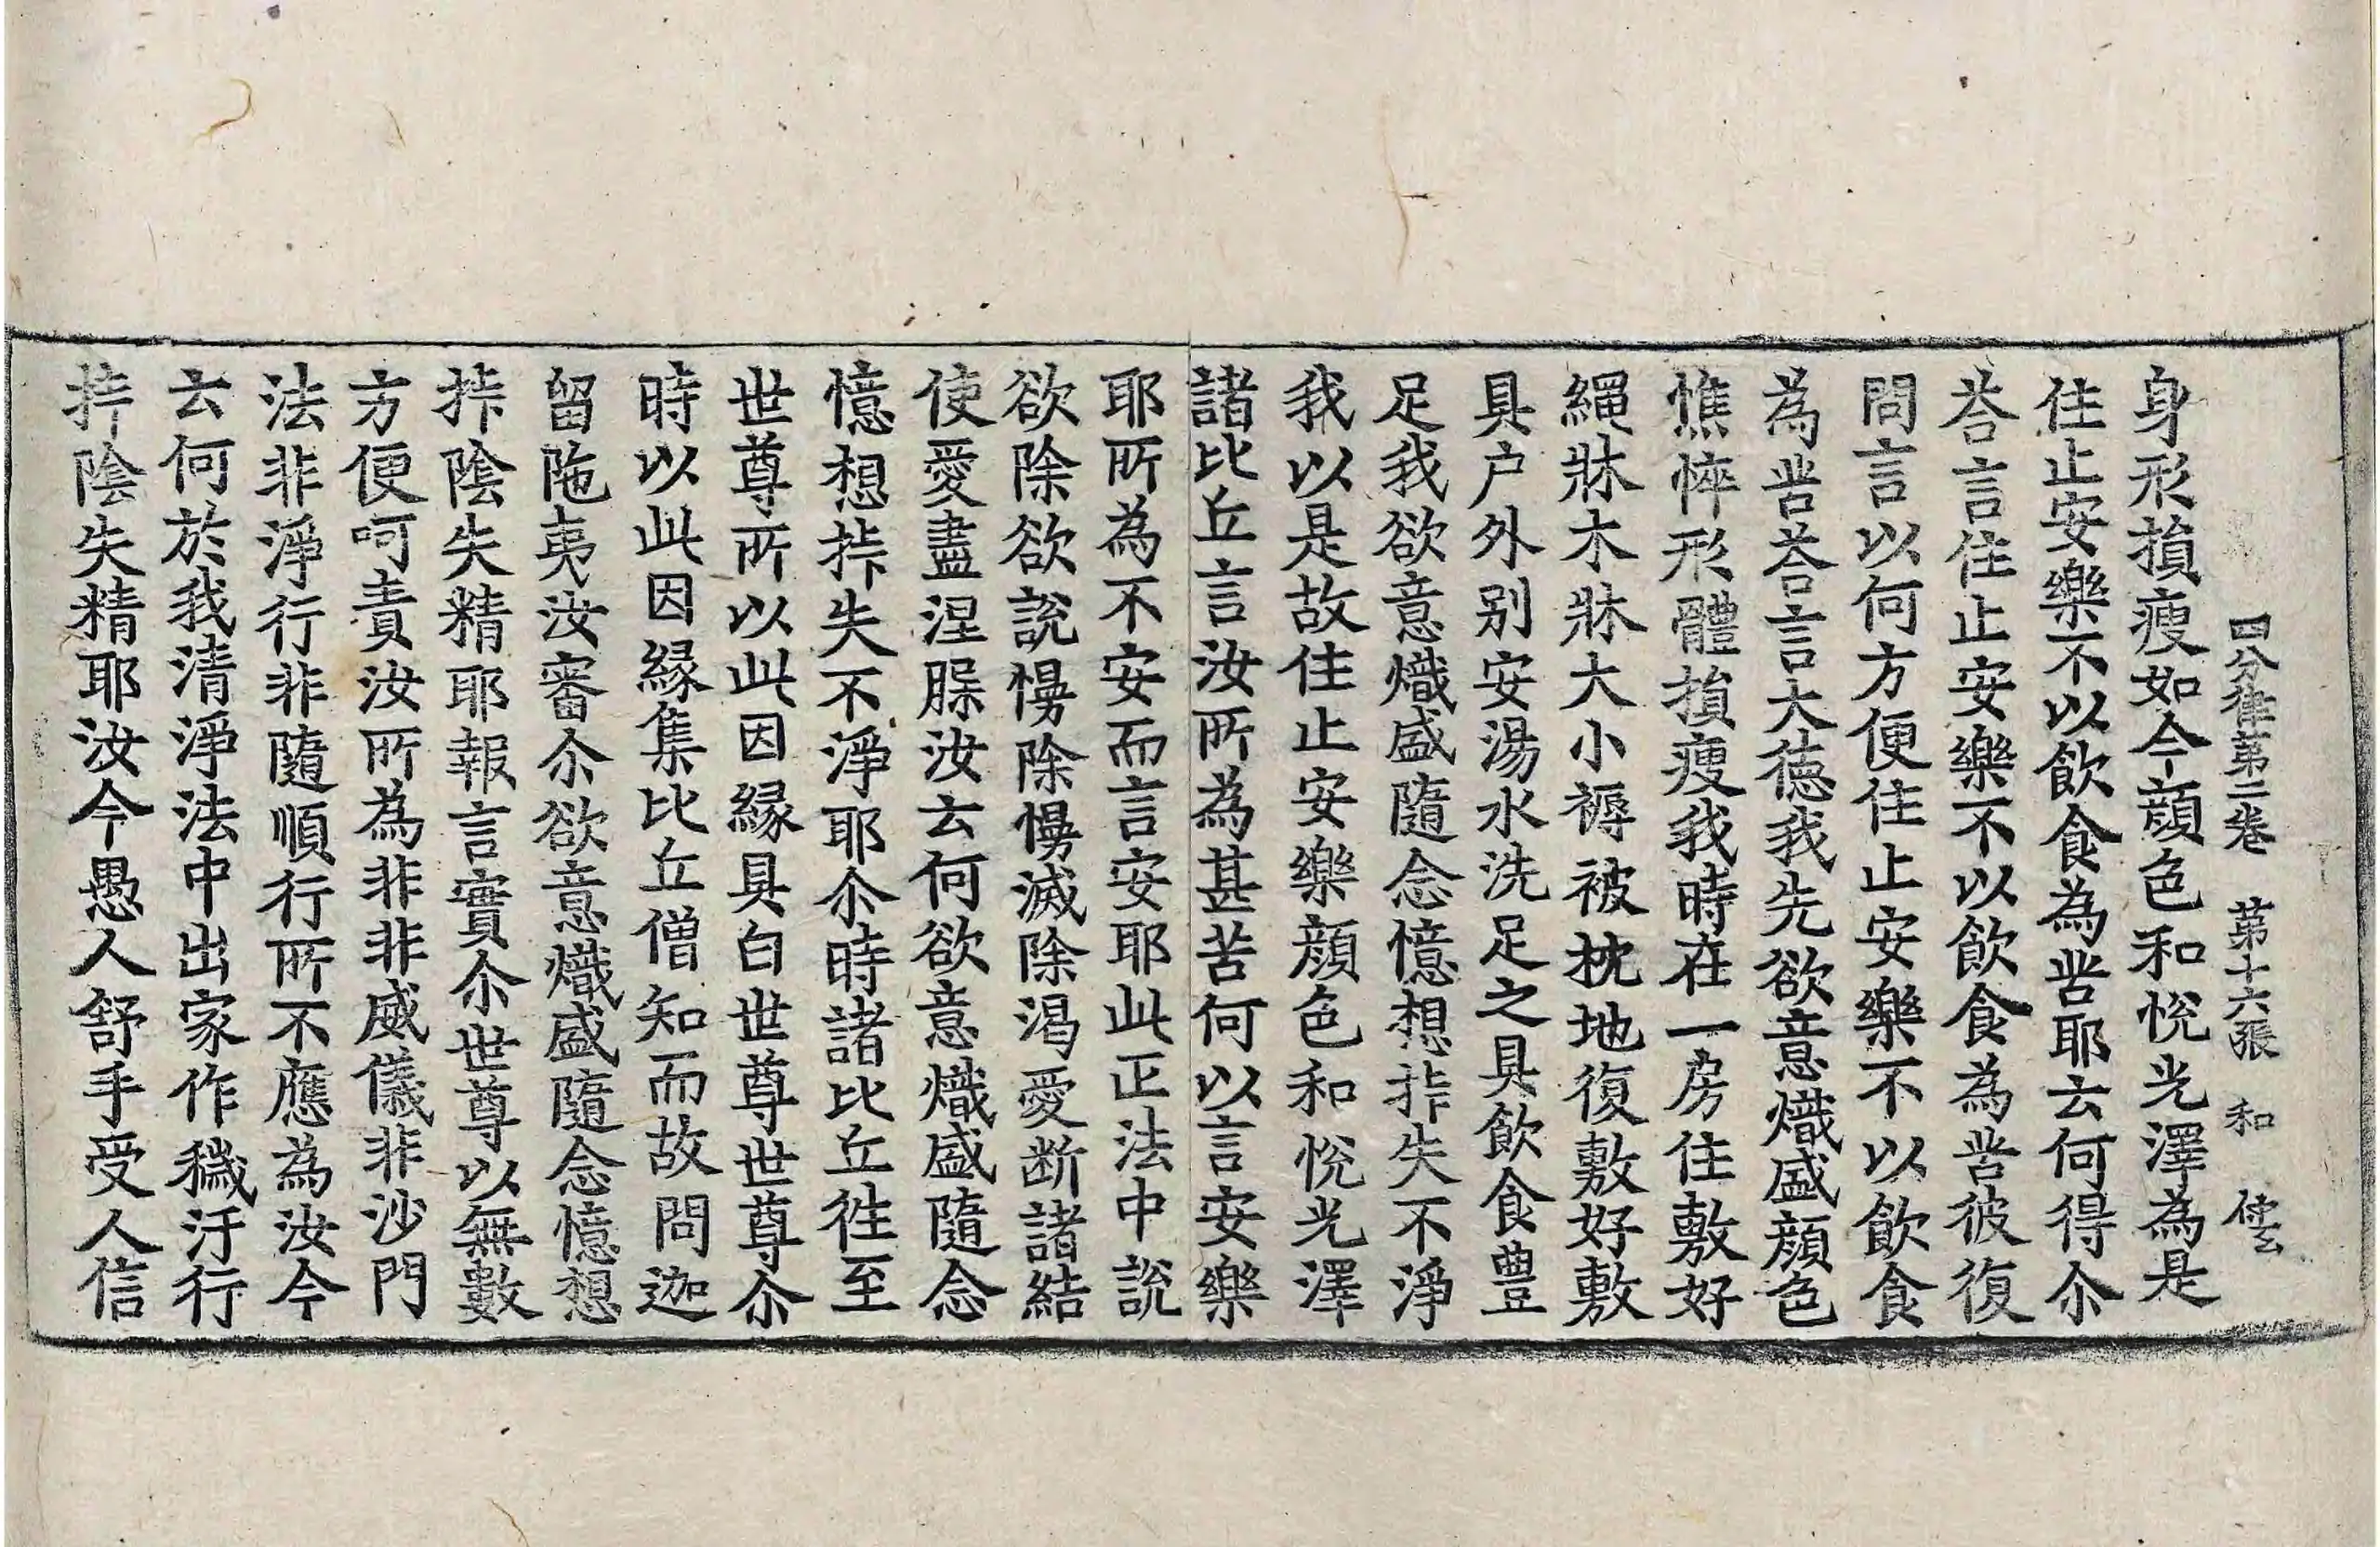 四分律第二卷　第十六張　和
身形損瘦如今顔色和悅光澤為是
住止安樂不以飲食為甞耶云何得尒
荅言住止安樂不以飲食為甞彼復
問言以何方便住止安樂不以飲食
為甞荅言大德我先欲意熾盛顔色
憔悴形體損瘦我時在一房住敷好
繩牀木牀大小褥被枕地復敷好敷
具户外别安湯水洗足之具飲食豊
足我欲意熾盛隨念憶想㧊失不淨
我以是故住止安樂顔色和悅光澤
諸比丘言汝所為甚苦何以言安樂
耶所為不安而言安耶此正法中說
欲除欲說慢除慢滅除渴愛断諸結
使愛盡涅槃汝云何欲意熾盛隨念
憶想㧊失不淨耶尒時諸比丘徃至
世尊所以此因縁具白世尊世尊尒
時以此因縁集比丘僧知而故問迦
留陁夷汝審尒欲意熾盛隨念憶想
㧊陰失精耶報言實尒世尊以無數
方便呵責汝所為非非威儀非沙門
法非淨行非隨順行所不應為汝今
云何於我清淨法中出家作穢汙行
㧊陰失精耶汝今愚人舒手受人信